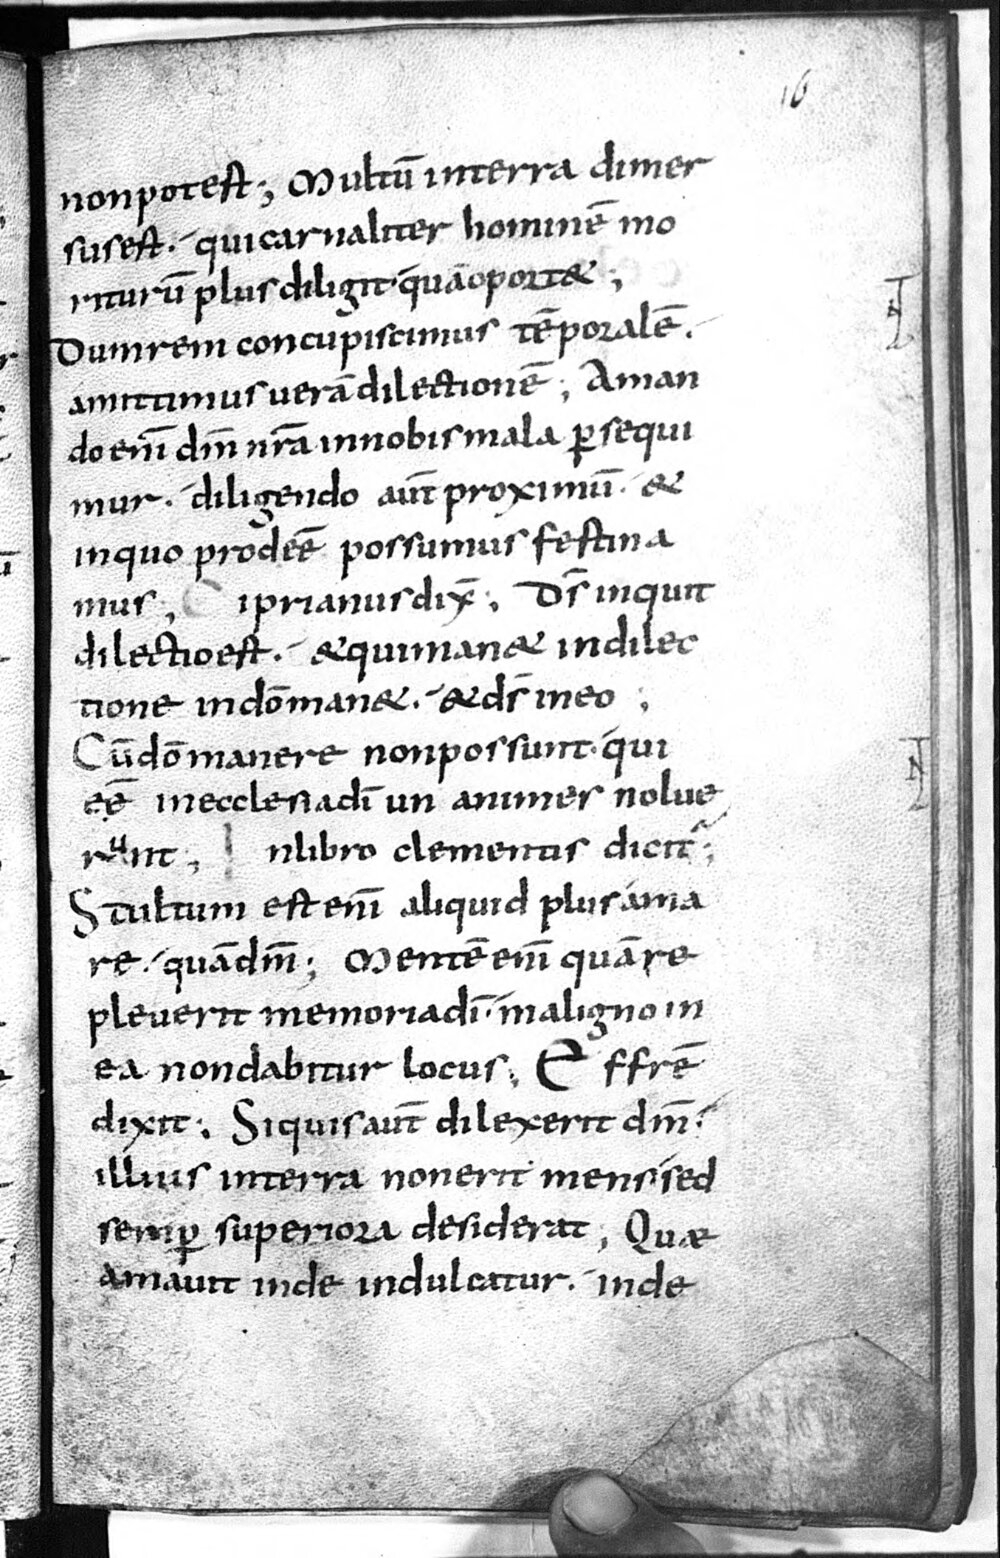 16
nonpotest; Multū interra dimer
susest. quicarnaliter hominē mo
riturū plus diligit quāoport&;
Dumrem concupiscimus tēporalē.
amittimus uerā dilectionē; Aman
do enī dm̄ nr̄a innobis mala ꝑsequi
mur. diligendo aut̄ proximū. &
inquo prodeē possumus festina
mus; Ciprianus dix̄; Ds̄ inquit
dilectioest. &quiman& indilec
tione indōman&. &ds̄ ineo;
Cūdōmanere nonpossunt qui
eē inecclesiadī un animes nolue
runt; Inlibro clementis dicit̄;
Stultum est enī aliquid plus ama
re. quādm̄; Mentē enī quāre
pleuerit memoriadī maligno in
ea nondabitur locus; Effrē
dixit; Siquis aut̄ dilexerit dm̄.
illius interra nonerit mens sed
semꝑ superiora desiderat; Quæ
amauit inde indulcatur. inde